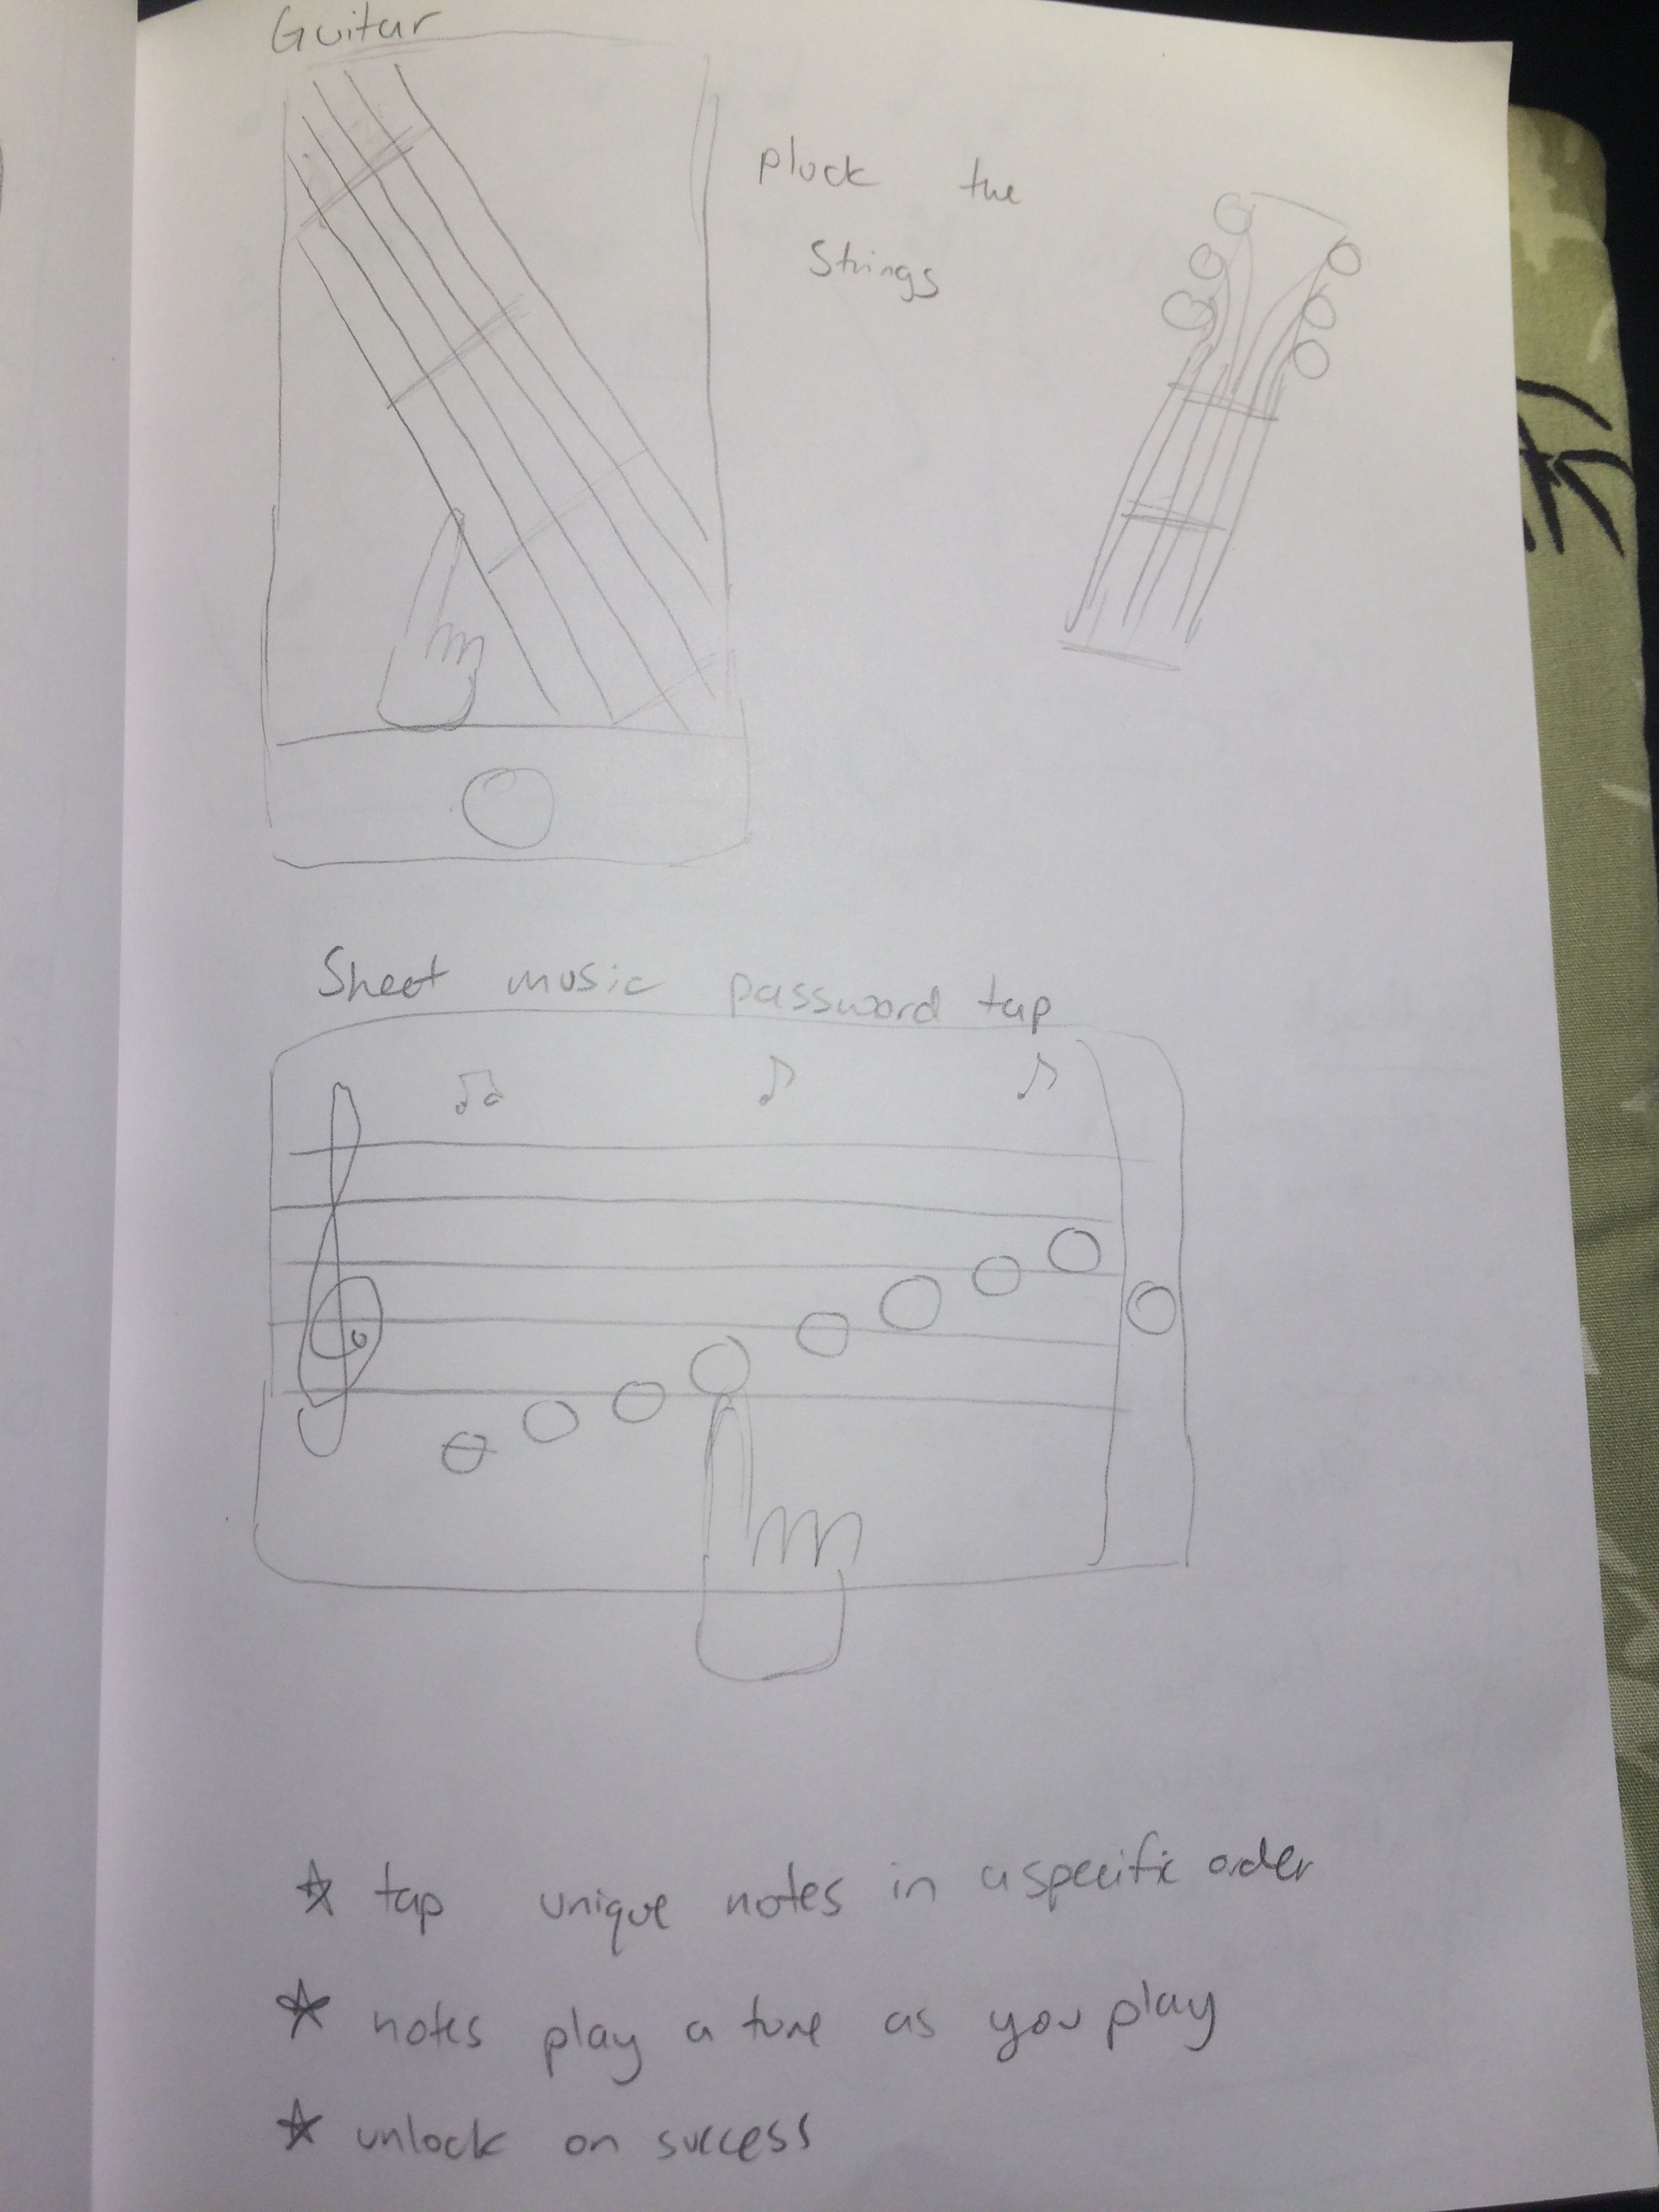 Guitar
pluck the
strings
Sheet music password tap
tap unique notes in a specific order
notes play a tune as you play
unlock on success